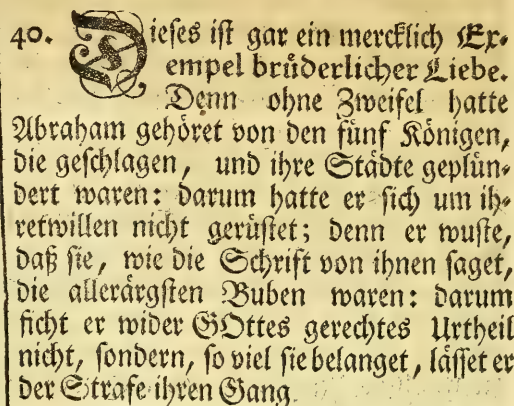 40. Dieses ist gar ein mercklich Ex-
empel brüderlicher Liebe.
Denn ohne Zweifel hatte
Abraham gehöret von den fünf Königen,
die geschlagen, und ihre Städte geplün-
dert waren: darum hatte er sich um ih-
retwillen nicht gerüstet; denn er wuste,
daß sie, wie die Schrift von ihnen saget,
die allerärgsten Buben waren: darum
ficht er wider GOttes gerechtes Urtheil
nicht, sondern, so viel sie belanget, lässet er
der Strafe ihren Gang